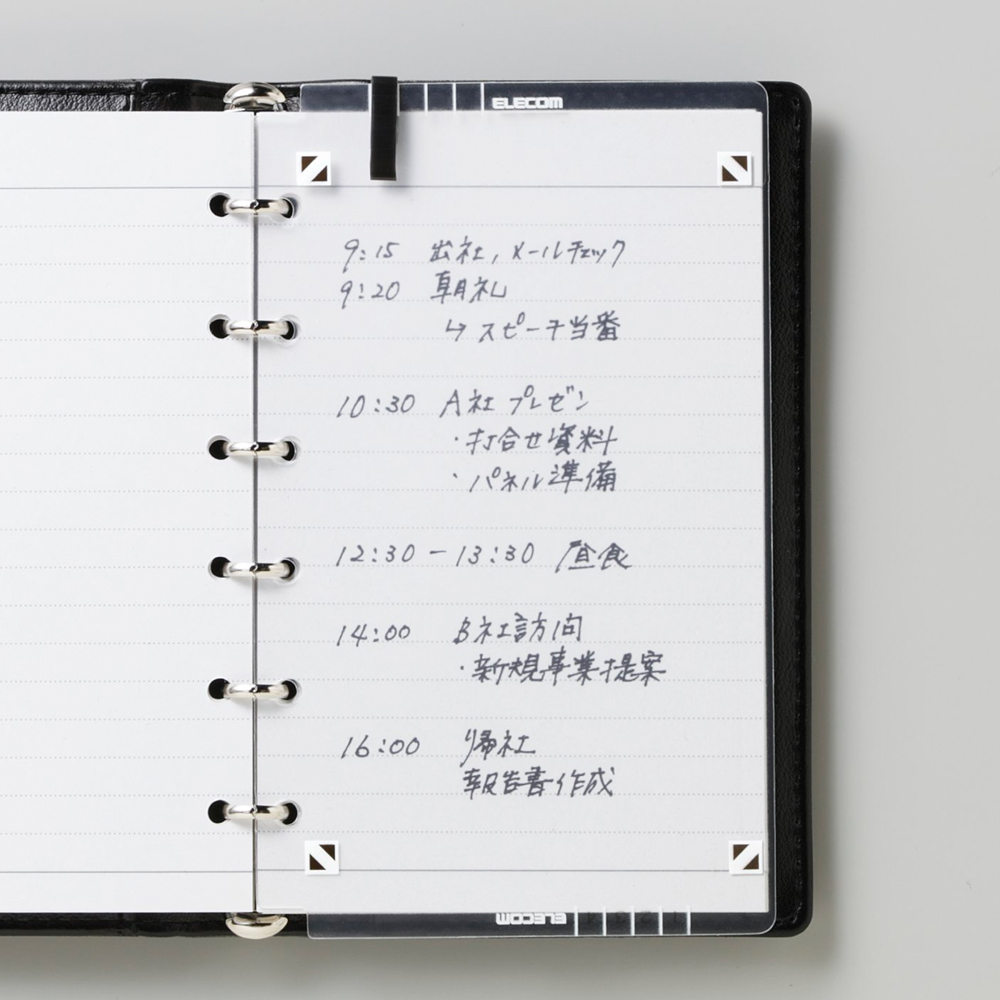 ELECOM
9:15 出社, メールチェック
9:20 朝礼
↳ スピーチ当番
10:30 A社プレゼン
・打合せ資料
・パネル準備
12:30 - 13:30 昼食
14:00 B社訪問
・新規事業提案
16:00 帰社
報告書作成
ELECOM